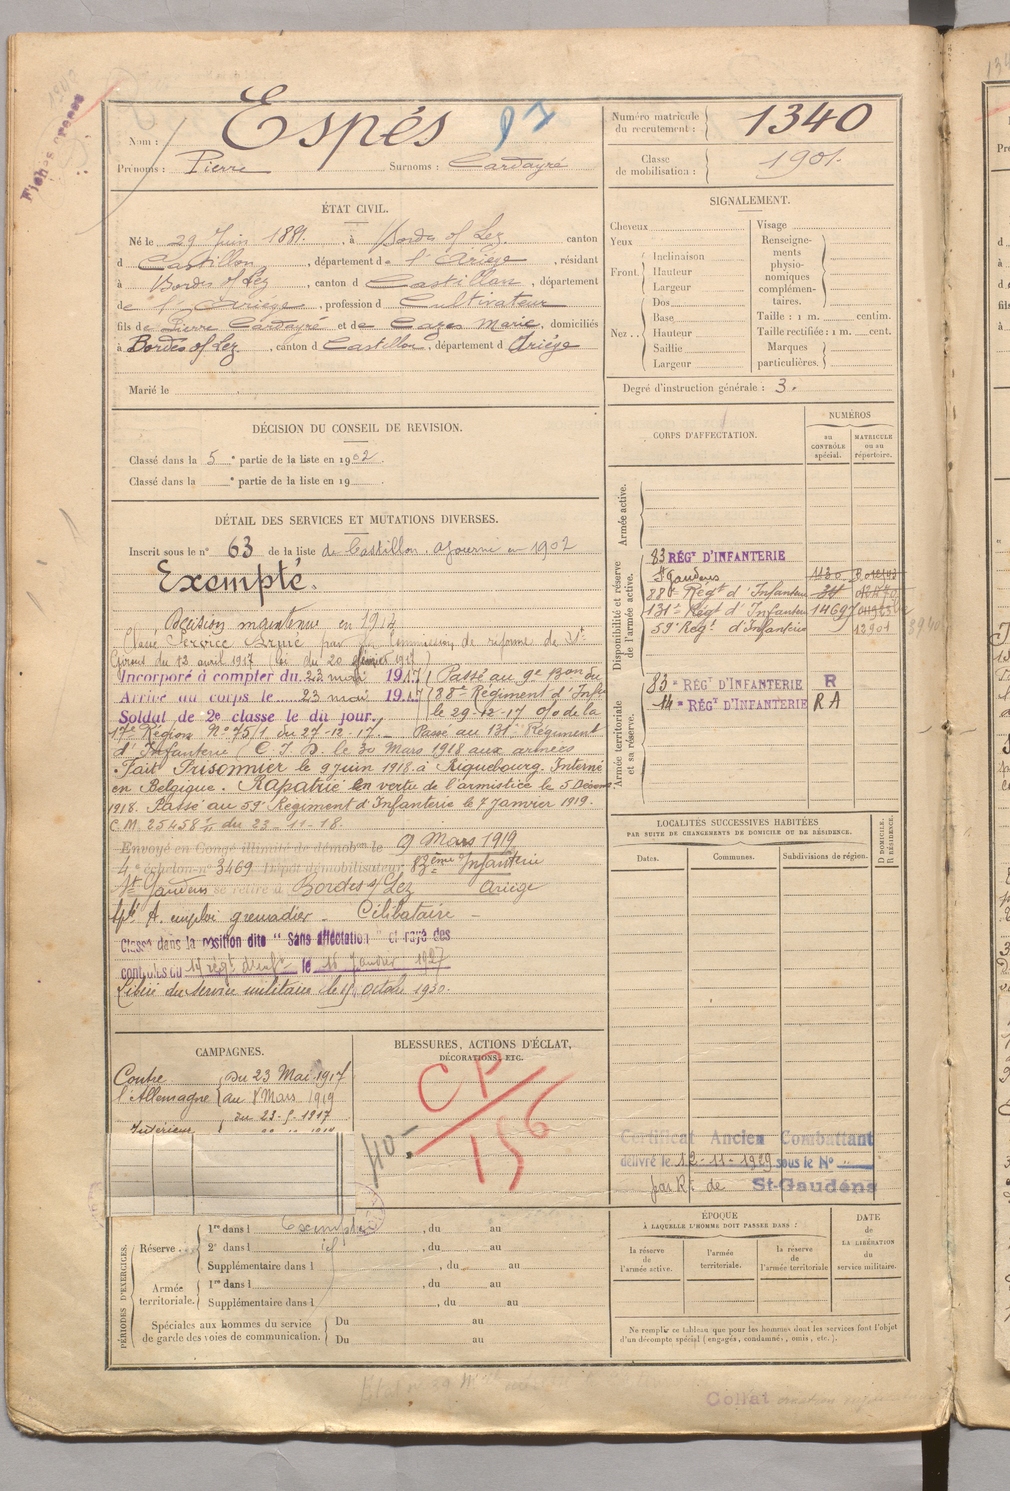 Fiches créées
Nom : Espés 97
Prénoms : Pierre Surnoms : Cardayré
Numéro matricule du recrutement : 1340
Classe de mobilisation : 1901.
ÉTAT CIVIL.
Né le 29 Juin 1881., à Bordes s/ Lez, canton
d Castillon, département de l'Ariège, résidant
à Bordes s/ Lez, canton d Castillon, département
de l'Ariège, profession d Cultivateur
fils de Pierre Cardayré et de Cazes Marie, domiciliés
à Bordes s/ Lez, canton d Castillon, département d Ariège
Marié le
SIGNALEMENT.
Cheveux
Yeux
Front. Inclinaison
Hauteur
Largeur
Nez.. Dos
Base
Hauteur
Saillie
Largeur
Visage
Renseignements physionomiques complémentaires.
Taille : 1 m. centim.
Taille rectifiée : 1 m. cent.
Marques particulières.
Degré d'instruction générale : 3.
DÉCISION DU CONSEIL DE REVISION.
Classé dans la 5e partie de la liste en 1902
Classé dans la e partie de la liste en 19
DÉTAIL DES SERVICES ET MUTATIONS DIVERSES.
Inscrit sous le n° 63 de la liste de Castillon. Ajourné en 1902
Exempté.
Décision maintenue en 1914
Classé Service Armé par la Commission de réforme de St-
Girons du 12 avril 1917 (loi du 20 février 1917)
Incorporé à compter du 23 mai 1917 / Passé au 9e Bon du
Arrivé au corps le 23 mai 1917 / 88e Régiment d'Infie
Soldat de 2e classe le dit jour. le 29-12-17 o/ de la
17e Région N° 75/1 du 27-12-17 - Passé au 131e Régiment
d'Infanterie C I D. le 30 Mars 1918 aux armées
Fait Prisonnier le 9 juin 1918 à Riquebourg. Interné
en Belgique. Rapatrié en vertu de l'armistice le 5 Décem
1918. Passé au 59e Régiment d'Infanterie le 7 Janvier 1919.
C.M. 25458 du 23-11-18.
Envoyé en Congé illimité de démobon le 9 Mars 1919
4e échelon n° 3469 Dépôt démobilisateur 83ème Infanterie
St Gaudens se retire à Bordes s/ Lez Ariège
Apte A. emploi grenadier - Célibataire -
Classé dans la position dite "Sans affectation" et rayé des
contrôles du 14 régt d'infie le 16 Janvier 1927
Libéré du service militaire le 15 Octobre 1930.
CORPS D'AFFECTATION.
NUMÉROS
au CONTRÔLE spécial.
MATRICULE ou au répertoire.
Armée active.
Disponibilité et réserve de l'armée active.
83 RÉGt D'INFANTERIE
St Gaudens 1130
88e Régt d'Infanterie 34
131e Régt d'Infanterie 14697
59e Régt d'Infanterie 13901
Armée territoriale et sa réserve.
83e RÉGt D'INFANTERIE R
14e RÉGt D'INFANTERIE RA
LOCALITÉS SUCCESSIVES HABITÉES
PAR SUITE DE CHANGEMENTS DE DOMICILE OU DE RÉSIDENCE.
Dates. Communes. Subdivisions de région. D DOMICILE. R RÉSIDENCE.
Certificat Ancien Combattant
délivré le 12-11-1929 sous le N°
par Rt de St-Gaudens
CAMPAGNES.
Contre l'Allemagne du 23 Mai 1917
au 8 Mars 1919
Intérieur du 23-5-1917
BLESSURES, ACTIONS D'ÉCLAT, DÉCORATIONS, ETC.
CP/156
40.-
PÉRIODES D'EXERCICES.
Réserve. 1re dans l Exempté, du au
2e dans l id, du au
Supplémentaire dans l, du au
Armée territoriale. 1re dans l, du au
Supplémentaire dans l, du au
Spéciales aux hommes du service de garde des voies de communication. Du au
Du au
ÉPOQUE
À LAQUELLE L'HOMME DOIT PASSER DANS :
la réserve de l'armée active.
l'armée territoriale.
la réserve de l'armée territoriale
DATE DE LA LIBÉRATION du service militaire.
Ne remplir ce tableau que pour les hommes dont les services font l'objet
d'un décompte spécial (engagés, condamnés, omis, etc.).
Collat